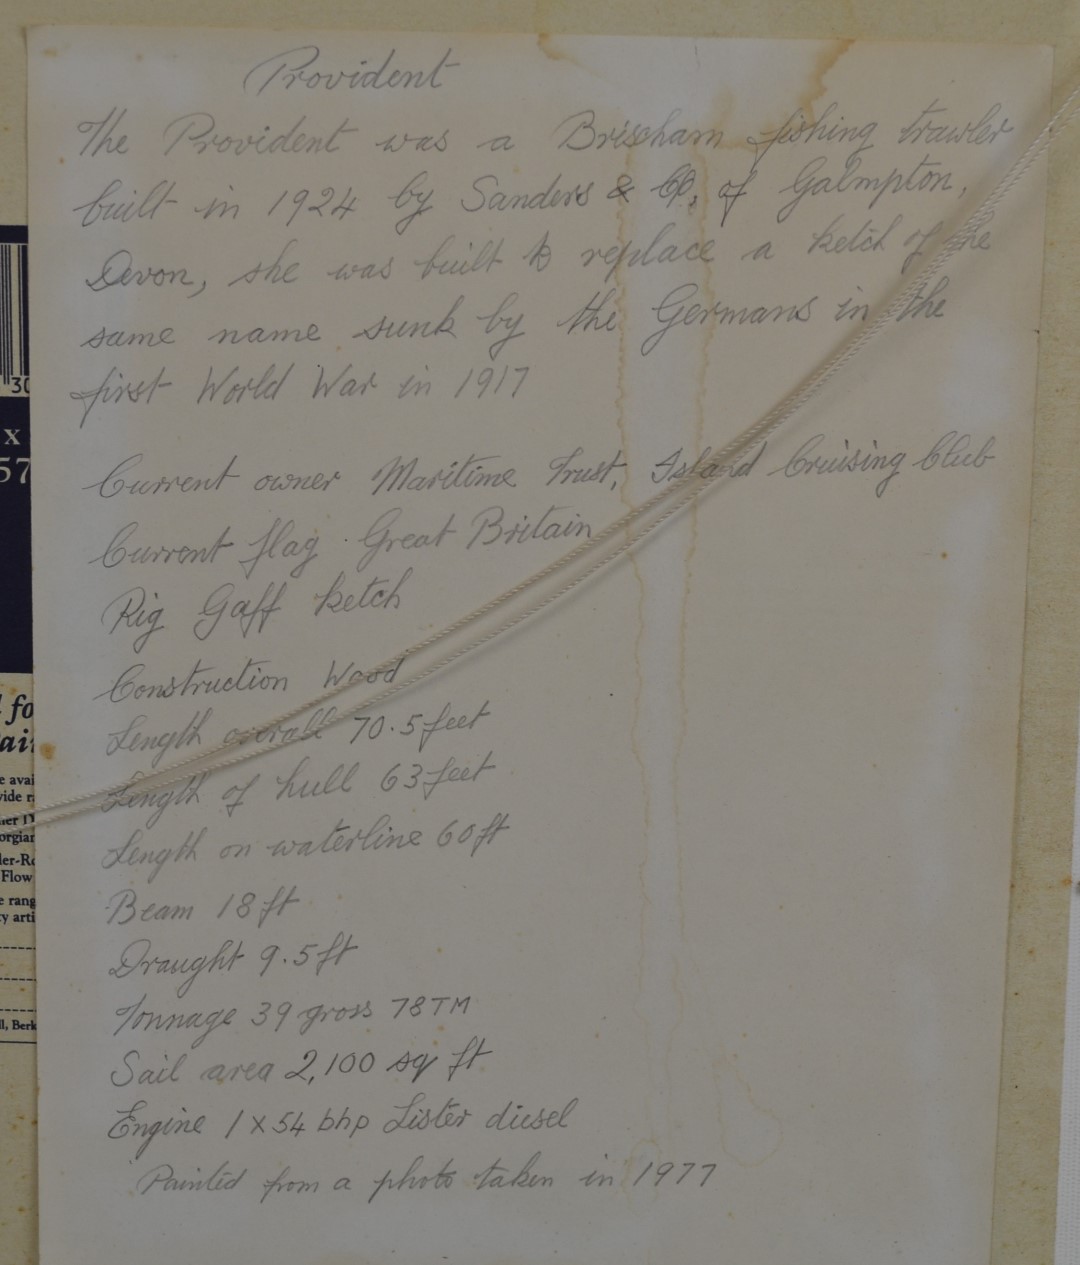 Provident
The Provident was a Brixham fishing trawler
built in 1924 by Sanders & Co, of Galmpton,
Devon, she was built to replace a ketch of the
same name sunk by the Germans in the
first World War in 1917
Current owner Maritime Trust, Island Cruising Club
Current flag Great Britain
Rig Gaff ketch
Construction Wood
Length overall 70.5 feet
Length of hull 63 feet
Length on waterline 60 ft
Beam 18 ft
Draught 9.5 ft
Tonnage 39 gross 78 TM
Sail area 2,100 sq ft
Engine 1 x 54 bhp Lister diesel
Painted from a photo taken in 1977
30
x
57